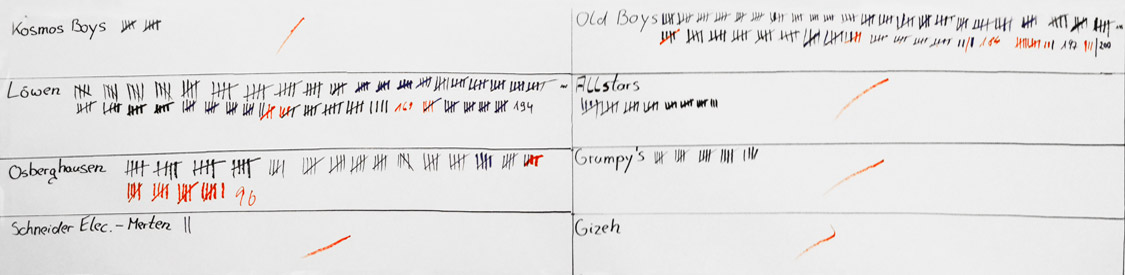 Kosmos Boys
Löwen
169 194
Osberghausen
96
Schneider Elec. - Merten ||
Old Boys
186 192 200
Allstars
Grumpy's
Gizeh